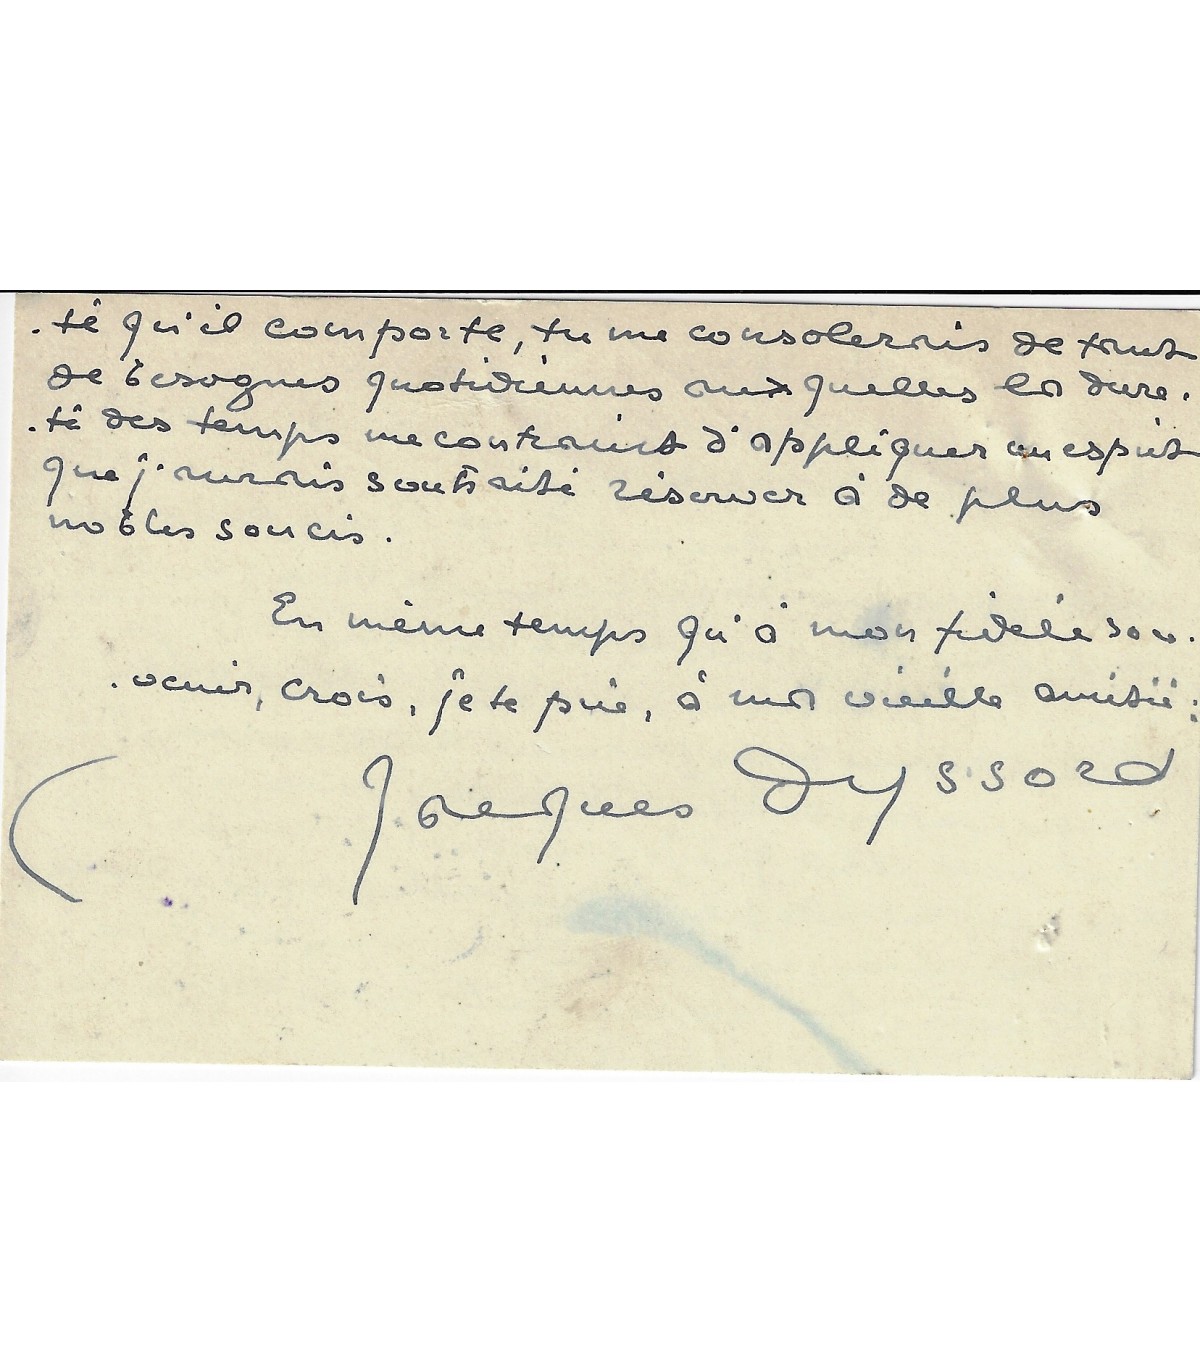 .té qu'il comporte, tu me consolerais de tant
de besognes quotidiennes auxquelles la dure.
.té des temps me contraint d'appliquer un esprit
que j'aurais souhaité réserver à de plus
nobles soucis.
En même temps qu'à mon fidèle sou.
.venir, crois, je te prie, à ma vieille amitié:
Jacques Dyssord